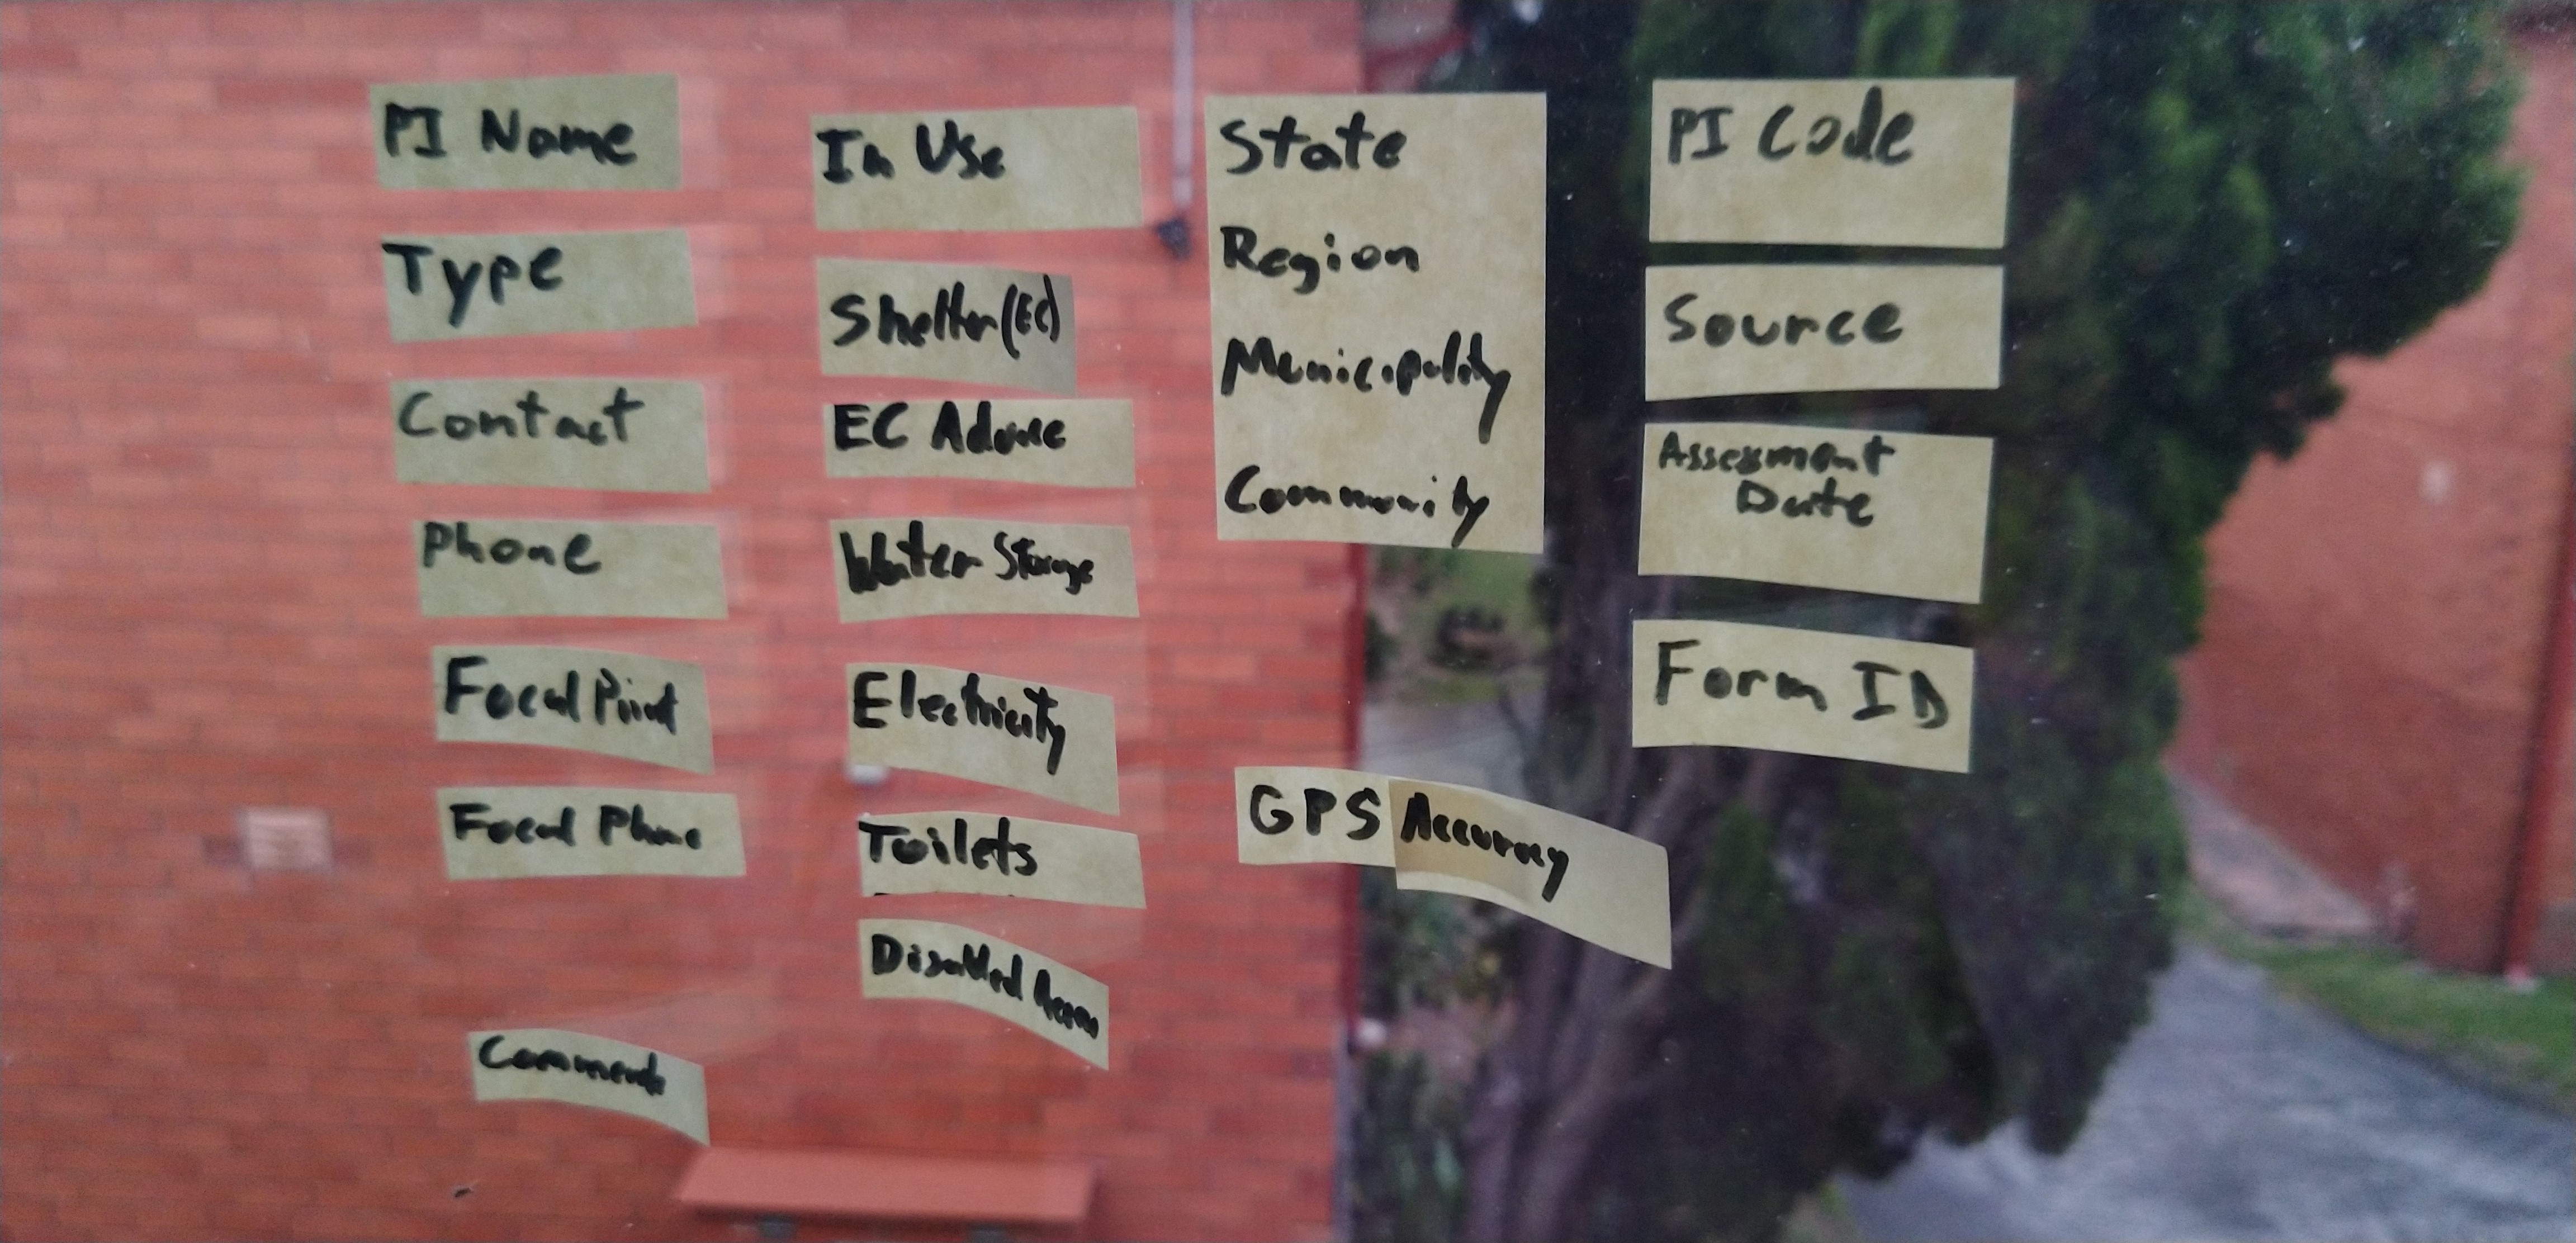 PI Name
Type
Contact
Phone
Focal Point
Focal Phone
Comments
In Use
Shelter(EC)
EC Advice
Water Storage
Electricity
Toilets
Disabled Access
State
Region
Municipality
Community
GPS Accuracy
PI Code
Source
Assessment
Date
Form ID